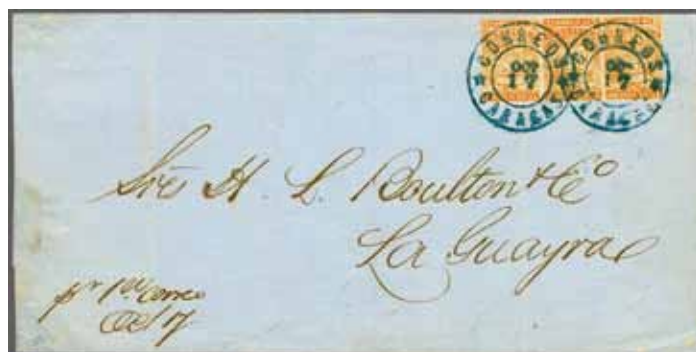 CORREOS
OCT
17
CARACAS
CORREOS
OCT
17
CARACAS
Sres H. L. Boulton & Co
La Guayra
pr 1er correo
Oct 17